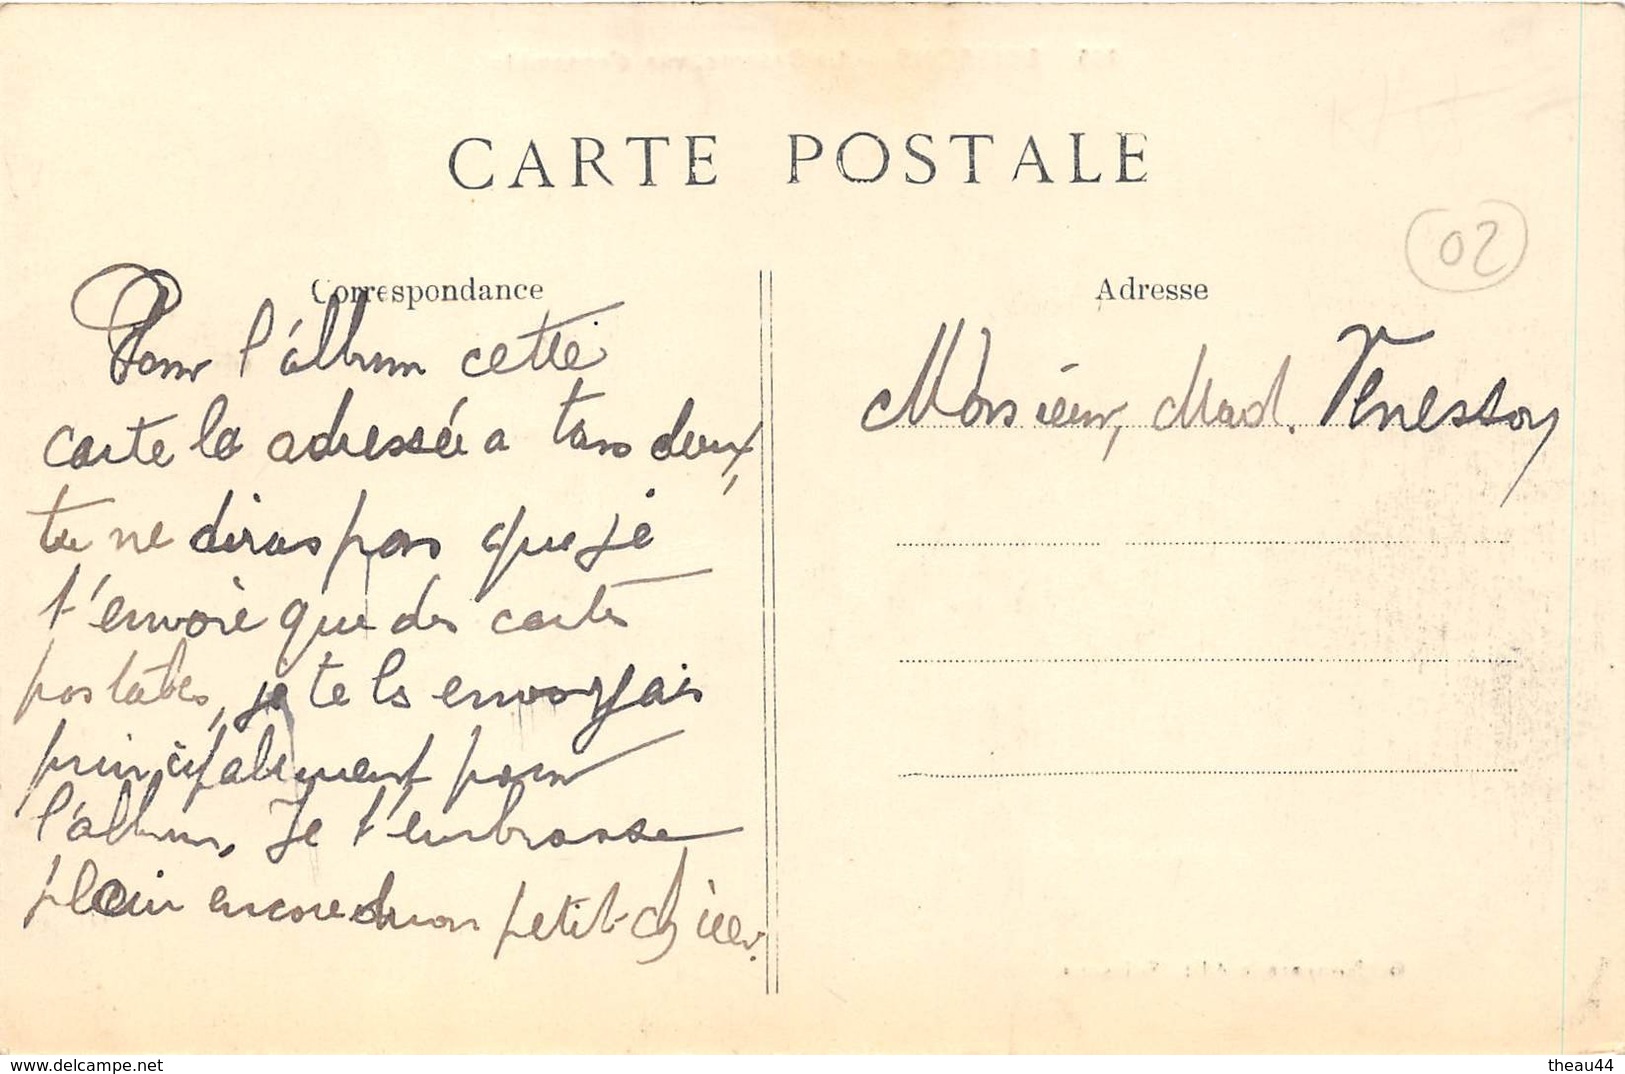 CARTE POSTALE
02
Correspondance
Pour l'álbum cette
carte la adressée a tous deux,
tu ne diras pas que je
t'envoie que des cartes
postales, je te ls envoyais
principalement pour
l'álbum. Je t'embrasse
plein encore mon petit-chien.
Adresse
Monsieur, Mad.
www.delcampe.net
theau44